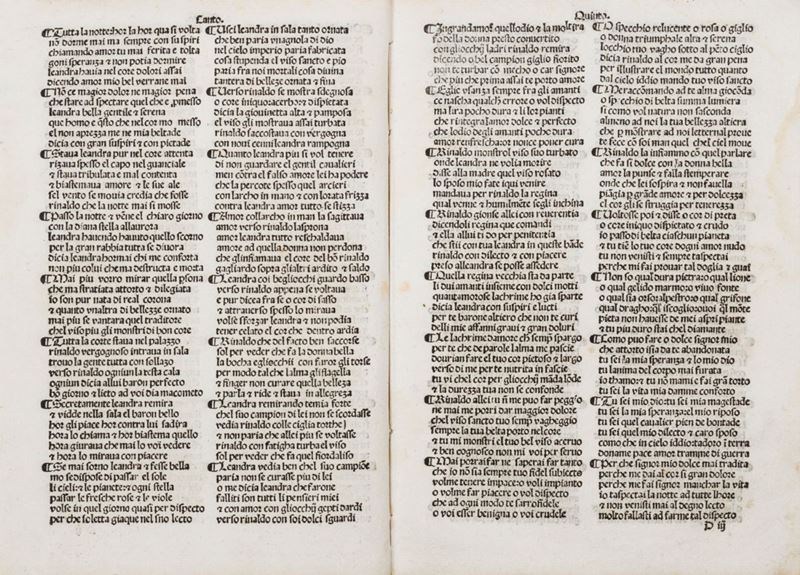 Canto.
Tutta la notte hor la hor qua si volta
nō dorme mai ma sempre con suspiri
chiamando amor tu mai ferita e tolta
goni speranza & non potia dormire
leandra havia nel core dolori assai
dicendo amor mio bel verrane mai
Nō ce magior dolore ne magior pena
che stare ad spectare quel che e pmesso
leandra bella gentile & serena
que homo e q̄sto che nel cor mo messo
el non aprezza me ne mia beltade
dicia con gran suspiri & con pietade
Staua leandra pur nel core attenta
rizaua spesso el capo nel guanciale
& staua tribulata e mal contenta
& biastemaua amore & le sue ale
sel vento se mouia credia che fosse
rinaldo che la notte mai si mosse
Passo la notte & vēne el chiaro giorno
con la diana stella allaurora
leandra hauendo hauuto quello scorno
per la gran rabbia tutta se diuora
dicia leandra hormai chi me conforta
non piu colui che ma destructa e morta
Mai piu votro mirar quella psona
che ma stratiata attorto & dilegiata
io son pur nata di real corona
& quanto vnaltra di bellezze ornato
mai piu se vantara quel traditore
chel viso piu gli monstri di bon core
Tutta la corte staua nel palazzo
rinaldo vergognoso intraua in sala
trouo la gente tutta con sollazo
verso rinaldo ogniun la testa cala
ogniun dicia allui baron perfecto
bō giorno e lieto ad voi dia macometo
Secretamente leandra remira
& vidde nella sala el baron bello
hor gli piace hor contra lui sadira
hora lo chiama & hor biastema quello
hora giuraua che mai lo voi vedere
& hora lo miraua con piacere
Se mai sotno leandra & fesse bella
mo se dispose di passar el sole
li cieli & le pianete & ogni stella
passar le fresche rose & le viole
volse in quel giorno quasi per dispecto
per che soletta giaque nel sno lecto
Usci leandra in sala tanto ornata
che ben paria vnagnola di dio
nel cielo imperio paria fabricata
cosa stupenda el viso sancto e pio
paria fra noi mortali cosa diuina
tantera di belleze ornata & fina
Verso rinaldo se mostra sdegnosa
o core iniquo acerbo & dispietata
dicia la giouinetta alta & pamposa
el viso gli mostraua assai turbata
rinaldo saccostaua con vergogna
con noui cenni leandra rampogna
Quanto leandra piu si vol tenere
di non guardare el gentil caualieri
men cōtra el falso amore lei ha podere
che la percote spesso quel arcieri
con larcho in mano & con lorata frizza
contra leandra amor tutto se drizza
Amor collarcho in man la sagittaua
amor verso rinaldo lasprona
amor leandra tutto reschaldaua
amore ad quella donna non perdona
che glinfiamaua el core del bō rinaldo
gagliardo sopra glialtri ardito & saldo
Leandra coi begliocchi guardo basso
verso rinaldo appena se voltaua
e pur dicea fra se o cor di sasso
& attrauerso spesso lo miraua
volse sforzar leandra & non podia
tener celato el cor che dentro ardia
Rinaldo che del facto ben saccorse
sol per veder che fa la donna bella
la bocha egliocchii con furor gli torse
per modo tal che lalma gli flagella
& finger non curare quella belleza
& parla & ride & staua in allegreza
Leandra remirando temia forte
chel suo campion di lei non se scordasse
vedia rinaldo colle ciglia torthe
& non paria che allei piu se voltasse
rinaldo con fatigha turbaa el viso
sol per veder che fa quel fiordaliso
Leandra vedia ben chel suo campiōe
paria non se curasse piu di lei
o me dicia leandra che farone
falliti son tutti li pensieri miei
& con amor con gliocchij gepti dardi
verso rinaldo con soi dolci sguardi
Quinto.
Ingrandamor quellodio & la moltira
fo della donna presto conuertito
con gliocchij ladri rinaldo remira
dicendo o bel campion giglio fiorito
non te turbar cō mecho o car signore
che piu che prima assai te porto amore
Eglie vsanza sempre fra gli amanti
ce nascha qualch errore o vol dispecto
ma lira pocho dura & li lor pianti
che rintegra lamor dolce & perfecto
che lodio degli amanti poche dura
amor renfreschator noiace pouer cura
Rinaldo monstrol viso suo turbato
onde leandra ne volia morire
disse alla madre quel viso rosato
lo sposo mio fate iqui venire
mandaua per rinaldo la regina
qual venne & humilmēte segli inchina
Rinaldo gionse allei con reuerentia
dicendoli regina que comandi
& ella allui o to per penitentia
che stii con tua leandra in queste bāde
rinaldo con dilecto & con piacere
preso alleandra se posse assedere
Quella regina vecchia sta da parte
li dui amanti insieme con dolci motti
quantamorose lachrime ho gia sparte
dicia leandra con suspiri e lucti
per te barone altiero che non te curi
delli mie affanni graui & gran doluri
Le lachrime damore ch sempi spargo
per te che de parole lalma me pascie
dourian fare el tuo cor pietoso & largo
verso di me per te nutrita in fascie
tu vi chel cor per gliocchij māda lōde
& la durezza tua non se confonde
Rinaldo allei: tu ñ me puo far pegg̃o
ne mai me porri dar maggior dolore
chel viso sancto tuo semp̄ vagheggio
sempre la tua belta porto nel core
& tu mi monstri el tuo bel viso aceruo
& ben cognosco non mi voi per seruo
Mai potrai far ne saperai far tanto
che io nō sia sempre tuo fidel subiecto
volme tenere impace o voli impianto
o volme far piacere o vol dispecto
che ad ogni modo te sarro fidele
o voi esser benigna o voi crudele
O specchio relucente o rosa o giglio
o donna triumphale alta & serena
locchio tuo vagho sotto al pēro ciglio
dicia rinaldo al cor me da gran pena
per illustrare el mondo tutto quanto
dal cielo iddio mando tuo viso sancto
Meraccomando ad te alma giocōda
o specchio di belta summa lumiera
si como vol natura non sasconda
almeno ad nei la tua bellezza altiera
che p mostrare ad noi letternal proue
te fece cō soi man quel chel ciel moue
Rinaldo la infiammo cō quel parlare
che fa si dolce con la donna bella
amor la punse & falla stemperare
onde che lei sospira & non fauella
pāgia p grāde amore & per dolcezza
el cor gli se struggi per tenerezza
Voltosse poi & disse o cor di preta
o core iniquo dispietato & crudo
io passo di belta ciaschun pianeta
& tu tiē lo tuo core dogni amor nudo
tu non venisti & sempre taspectai
per che mi fai prouar tal doglia & guai
Non so qual dura pietra o qual lione
o qual gelido marmo o viuo fonte
o qual sia orso o alpestro o qual grifone
qual dragho q̄l iscoglio o uoi q̄l mōte
pieta non hauisse de mei aspri piante
& tu piu duro stai chel diamante
Como puo fare o dolce signor mio
che attorto isia da te abandonata
tu sei la mia speranza e lo mio dio
tu lanima del corpo mai furata
io thamo & tu nō mami e fai grā torto
tu sei la vita mia damme conforto
Tu sei mio dio: tu sei mia magestade
tu sei la mia speranza el mio riposo
tu sei quel caualier pien de bontade
tu sei quel mio dilecto & caro sposo
como che in cielo iddio stado in terra
doname pace amor trampe di guerra
Per che signor mio dolce mai tradita
per che me dai al cor si gran dolore
perche me fai signor manchar la vita
io taspectai la notte ad tutte lhore
& non venisti mai al degno lecto
molto fallasti ad farme tal dispecto
D iij